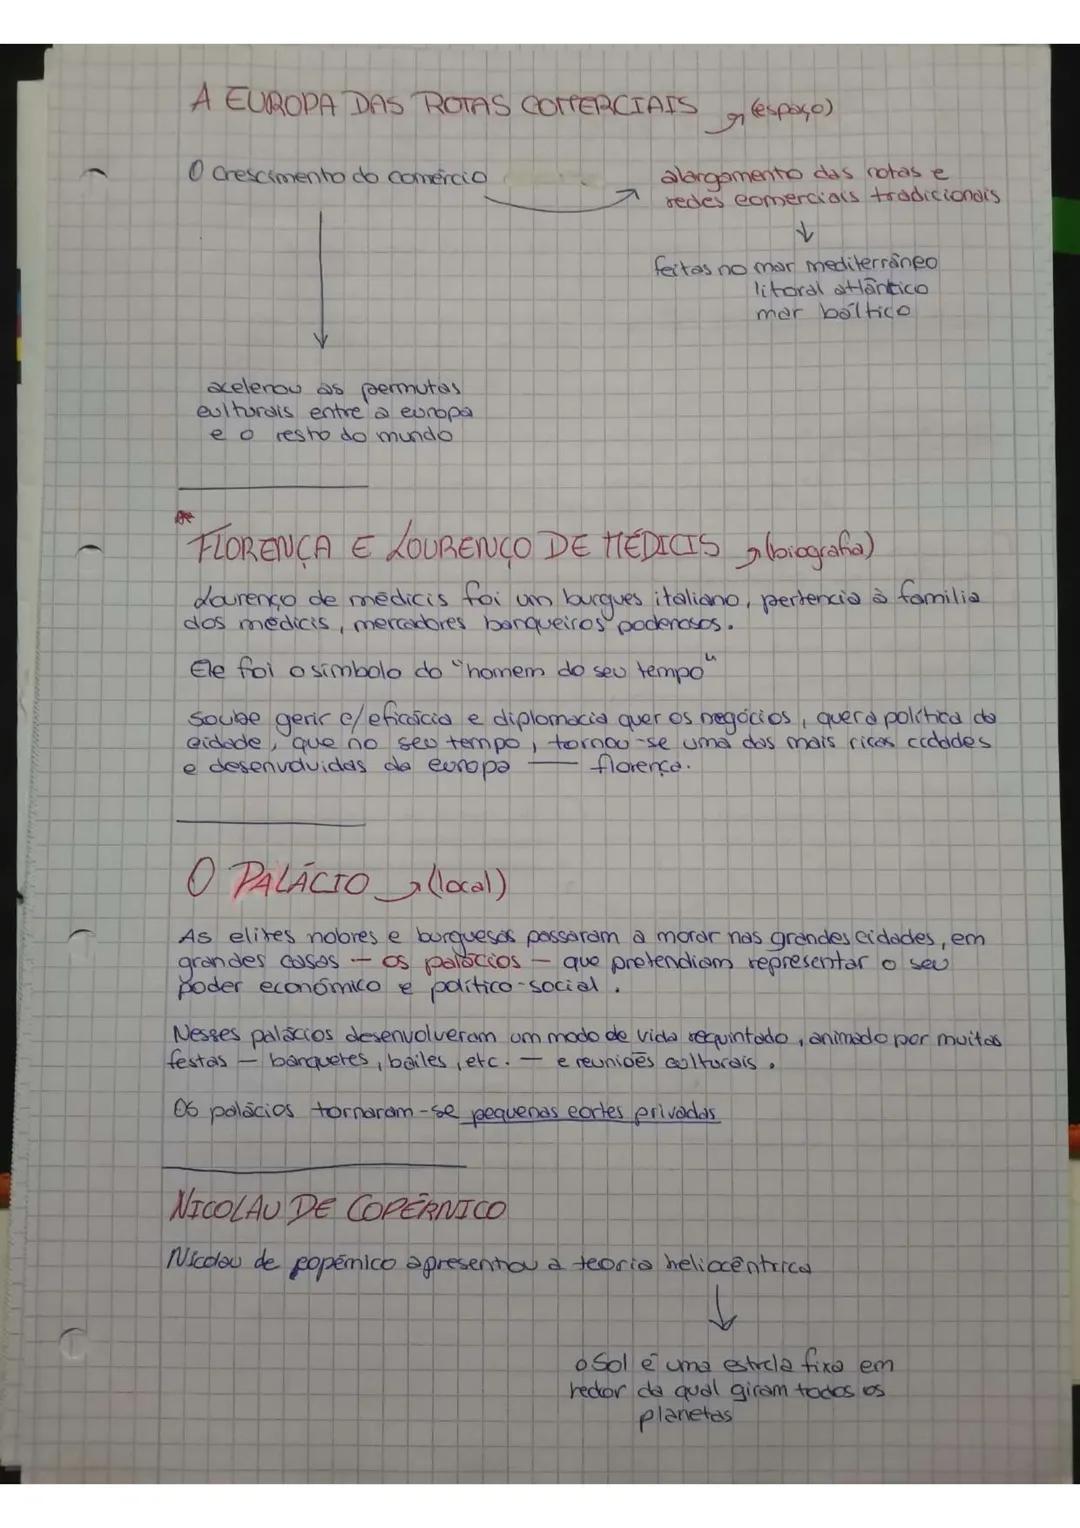 A EUROPA DAS ROTAS COMERCIAIS (espaço)
O crescimento do comércio
alargamento das rotas e
redes comerciais tradicionais
feitas no mar mediterrâneo
litoral atlântico
mar báltico
acelerou as permutas
culturais entre a europa
e o resto do mundo
FLORENÇA E LOURENÇO DE MÉDICIS (biografia)
Lourenço de médicis foi um burgues italiano, pertencia à familia
dos médicis, mercadores banqueiros poderosos.
Ele foi o símbolo do "homem do seu tempo"
soube gerir c/eficácia e diplomacia quer os negócios, quer a política da
cidade, que no seu tempo, tornou-se uma das mais ricas cidades
e desenvolvidas da europa — florença.
O PALÁCIO (local)
As elites nobres e burguesas passaram a morar nas grandes cidades, em
grandes casas - os palácios - que pretendiam representar o seu
poder económico e político-social.
Nesses palácios desenvolveram um modo de vida requintado, animado por muitas
festas - banquetes, bailes, etc. - e reuniões culturais.
Os palácios tornaram-se pequenas cortes privadas
NICOLAU DE COPÉRNICO
Nicolau de popérnico apresentou a teoria heliocêntrica
o Sol é uma estrela fixa em
redor da qual giram todos os
planetas